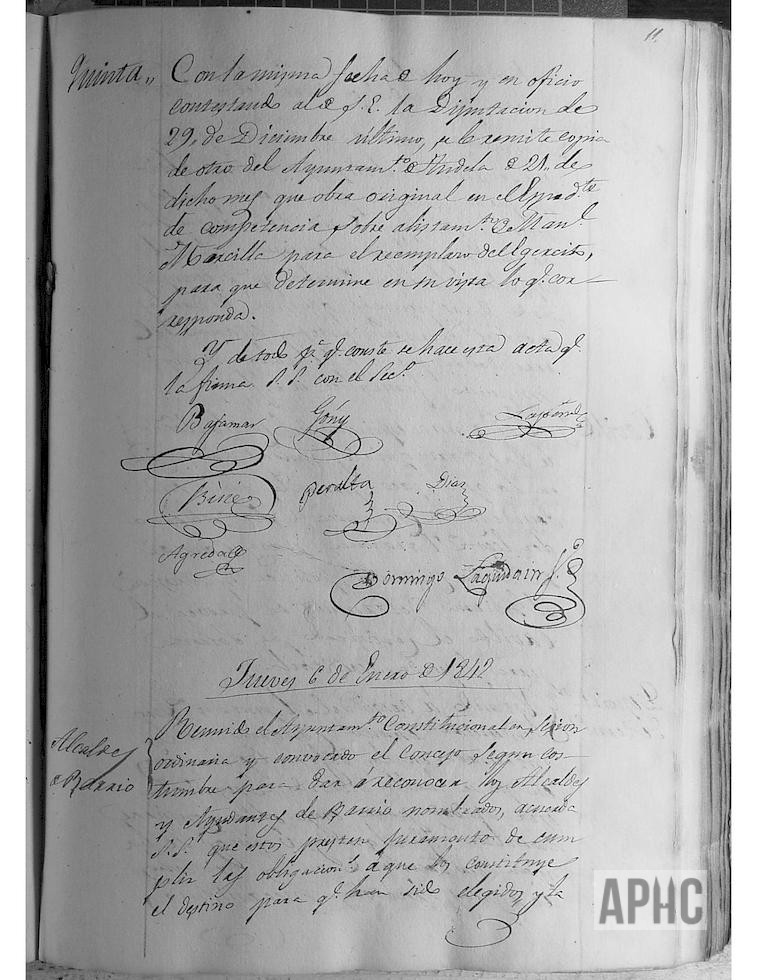 11.
Quinta,, Con la misma fecha de hoy y en oficio
contestando al de S. E. la Diputacion de
29,, de Diciembre último, se le remite copia
de otro del Ayuntam.to de Tudela de 21,, de
dicho mes que obra original en el Exped.te
de competencia sobre alistam.to de Man.l
Marcilla para el reemplazo del Egercito,
para que determine en su vista lo q.e cor-
responda.
Y de todo p.a q.e conste se hace esta acta q.e
la firma S. S. con el Sec.o
Bajamar Goñy
Peralta Diaz
Agreda
Domingo Lagudain S.o
Jueves 6 de Enero de 1842
Alcaldes
de Barrio
Reunido el Ayuntam.to Constitucional en sesion
ordinaria y convocado el Concejo segun cos-
tumbre para dar á reconocer los Alcaldes
y Ayudantes de Barrio nombrados, acuerda
S. S.a que estos presten juramento de cum
plir las obligacion.s á que los constituye
el destino para q.e han sido elegidos, y la
APHC